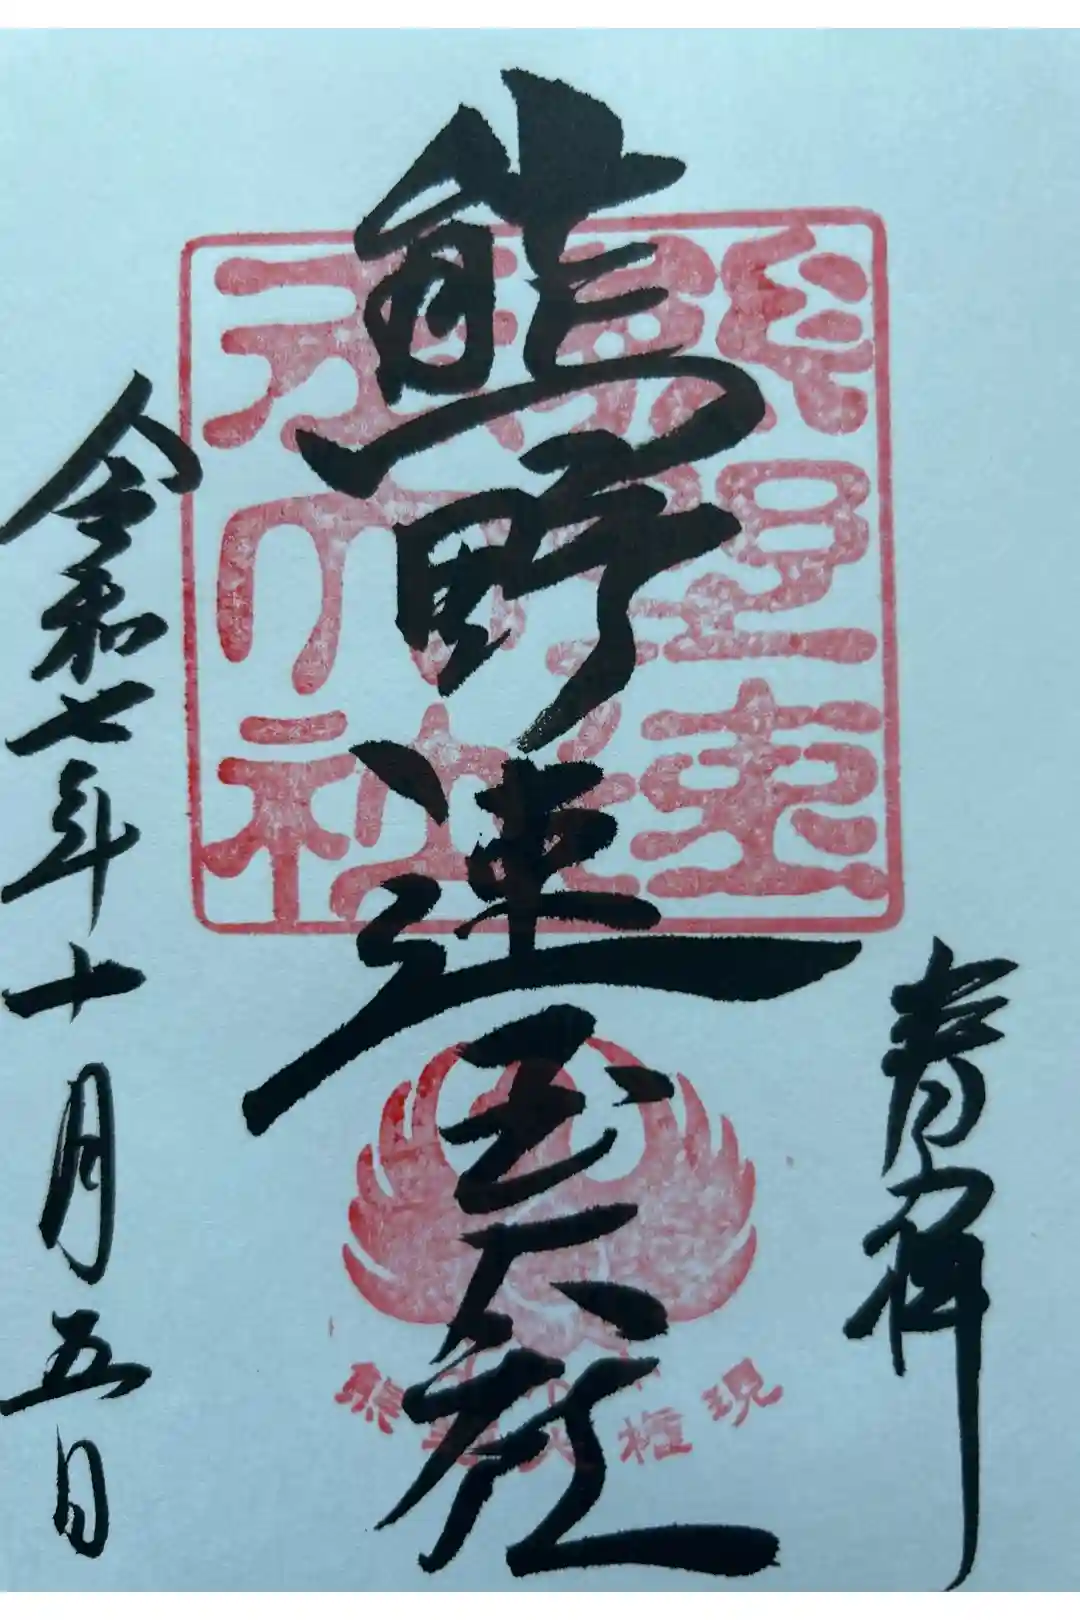 奉拝
熊野速玉大社
熊野速玉大社
熊野大権現
令和七年十月五日